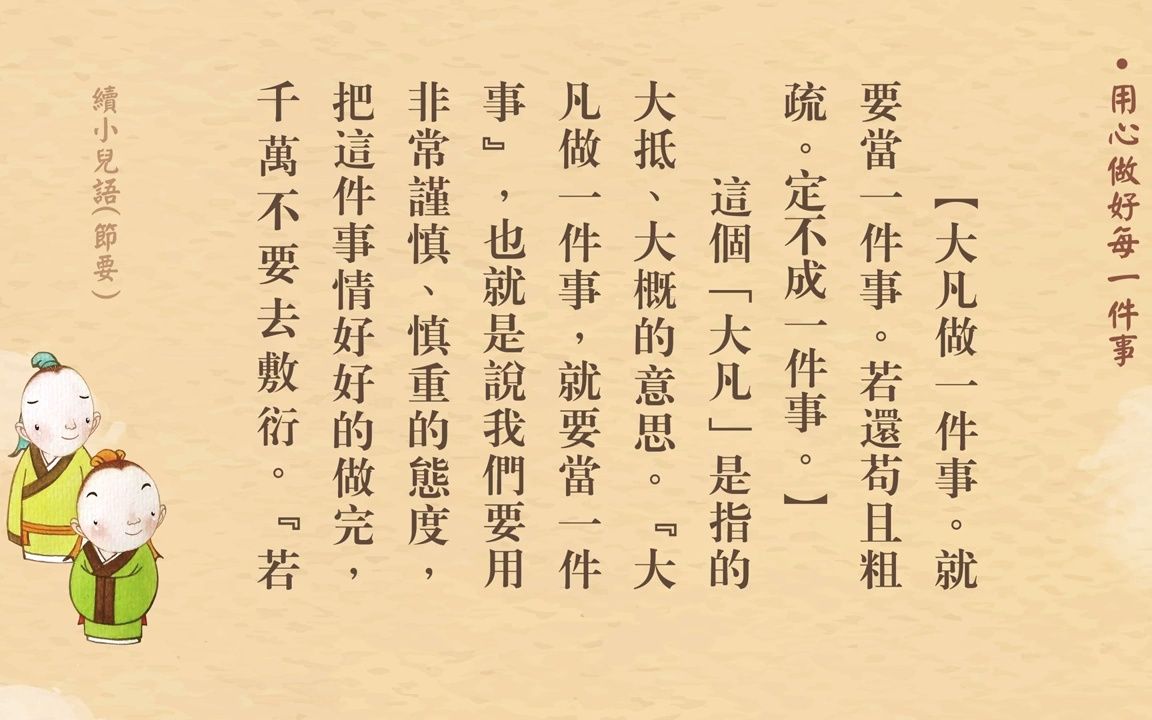 •用心做好每一件事
【大凡做一件事。就
要當一件事。若還苟且粗
疏。定不成一件事。】
這個「大凡」是指的
大抵、大概的意思。『大
凡做一件事，就要當一件
事』，也就是說我們要用
非常謹慎、慎重的態度，
把這件事情好好的做完，
千萬不要去敷衍。『若
續小兒語(節要)